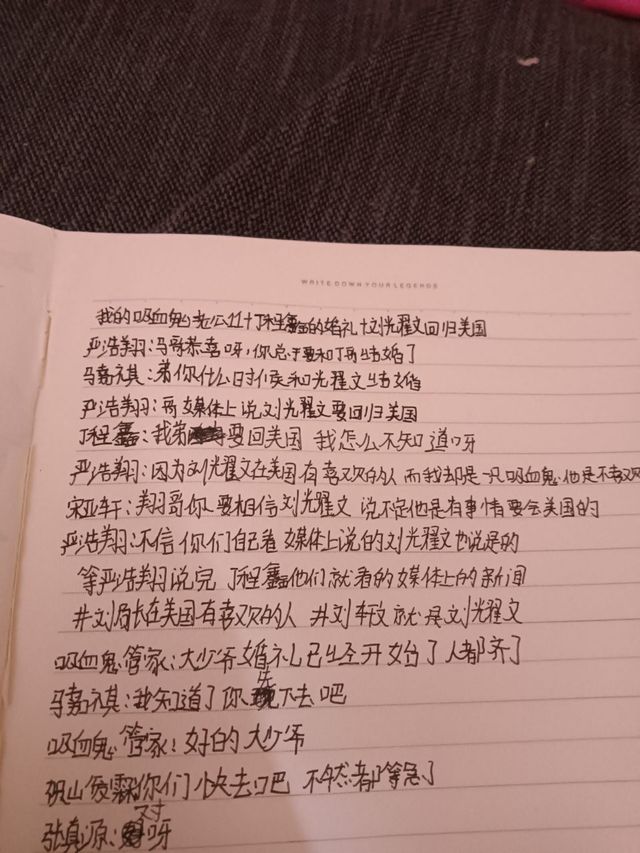 WRITE DOWN YOUR LEGENDS
我的吸血鬼老公11十丁程鑫的婚礼十刘耀文回归美国
严浩翔:马哥恭喜呀,你总于要和丁哥结婚了
马嘉祺:弟你什么时候和光耀文结婚
严浩翔:哥媒体上说刘光耀文要回归美国
丁程鑫:我弟要回美国 我怎么不知道呀
严浩翔:因为刘光耀文在美国有喜欢的人 而我却是一只吸血鬼他是不喜欢
宋亚轩:翔哥你要相信刘光耀文 说不定他是有事情要会美国的
严浩翔:不信你们自己看 媒体上说的刘光耀文也说是的
等严浩翔说完 丁程鑫他们就看的媒体上的新闻
#刘局长在美国有喜欢的人 #刘 就是刘光耀文
吸血鬼管家:大少爷婚礼已经开始了 人都齐了
马嘉祺:我知道了你先下去吧
吸血鬼管家:好的大少爷
祝山 你们快去吧 不然都等急了
张真源:对呀